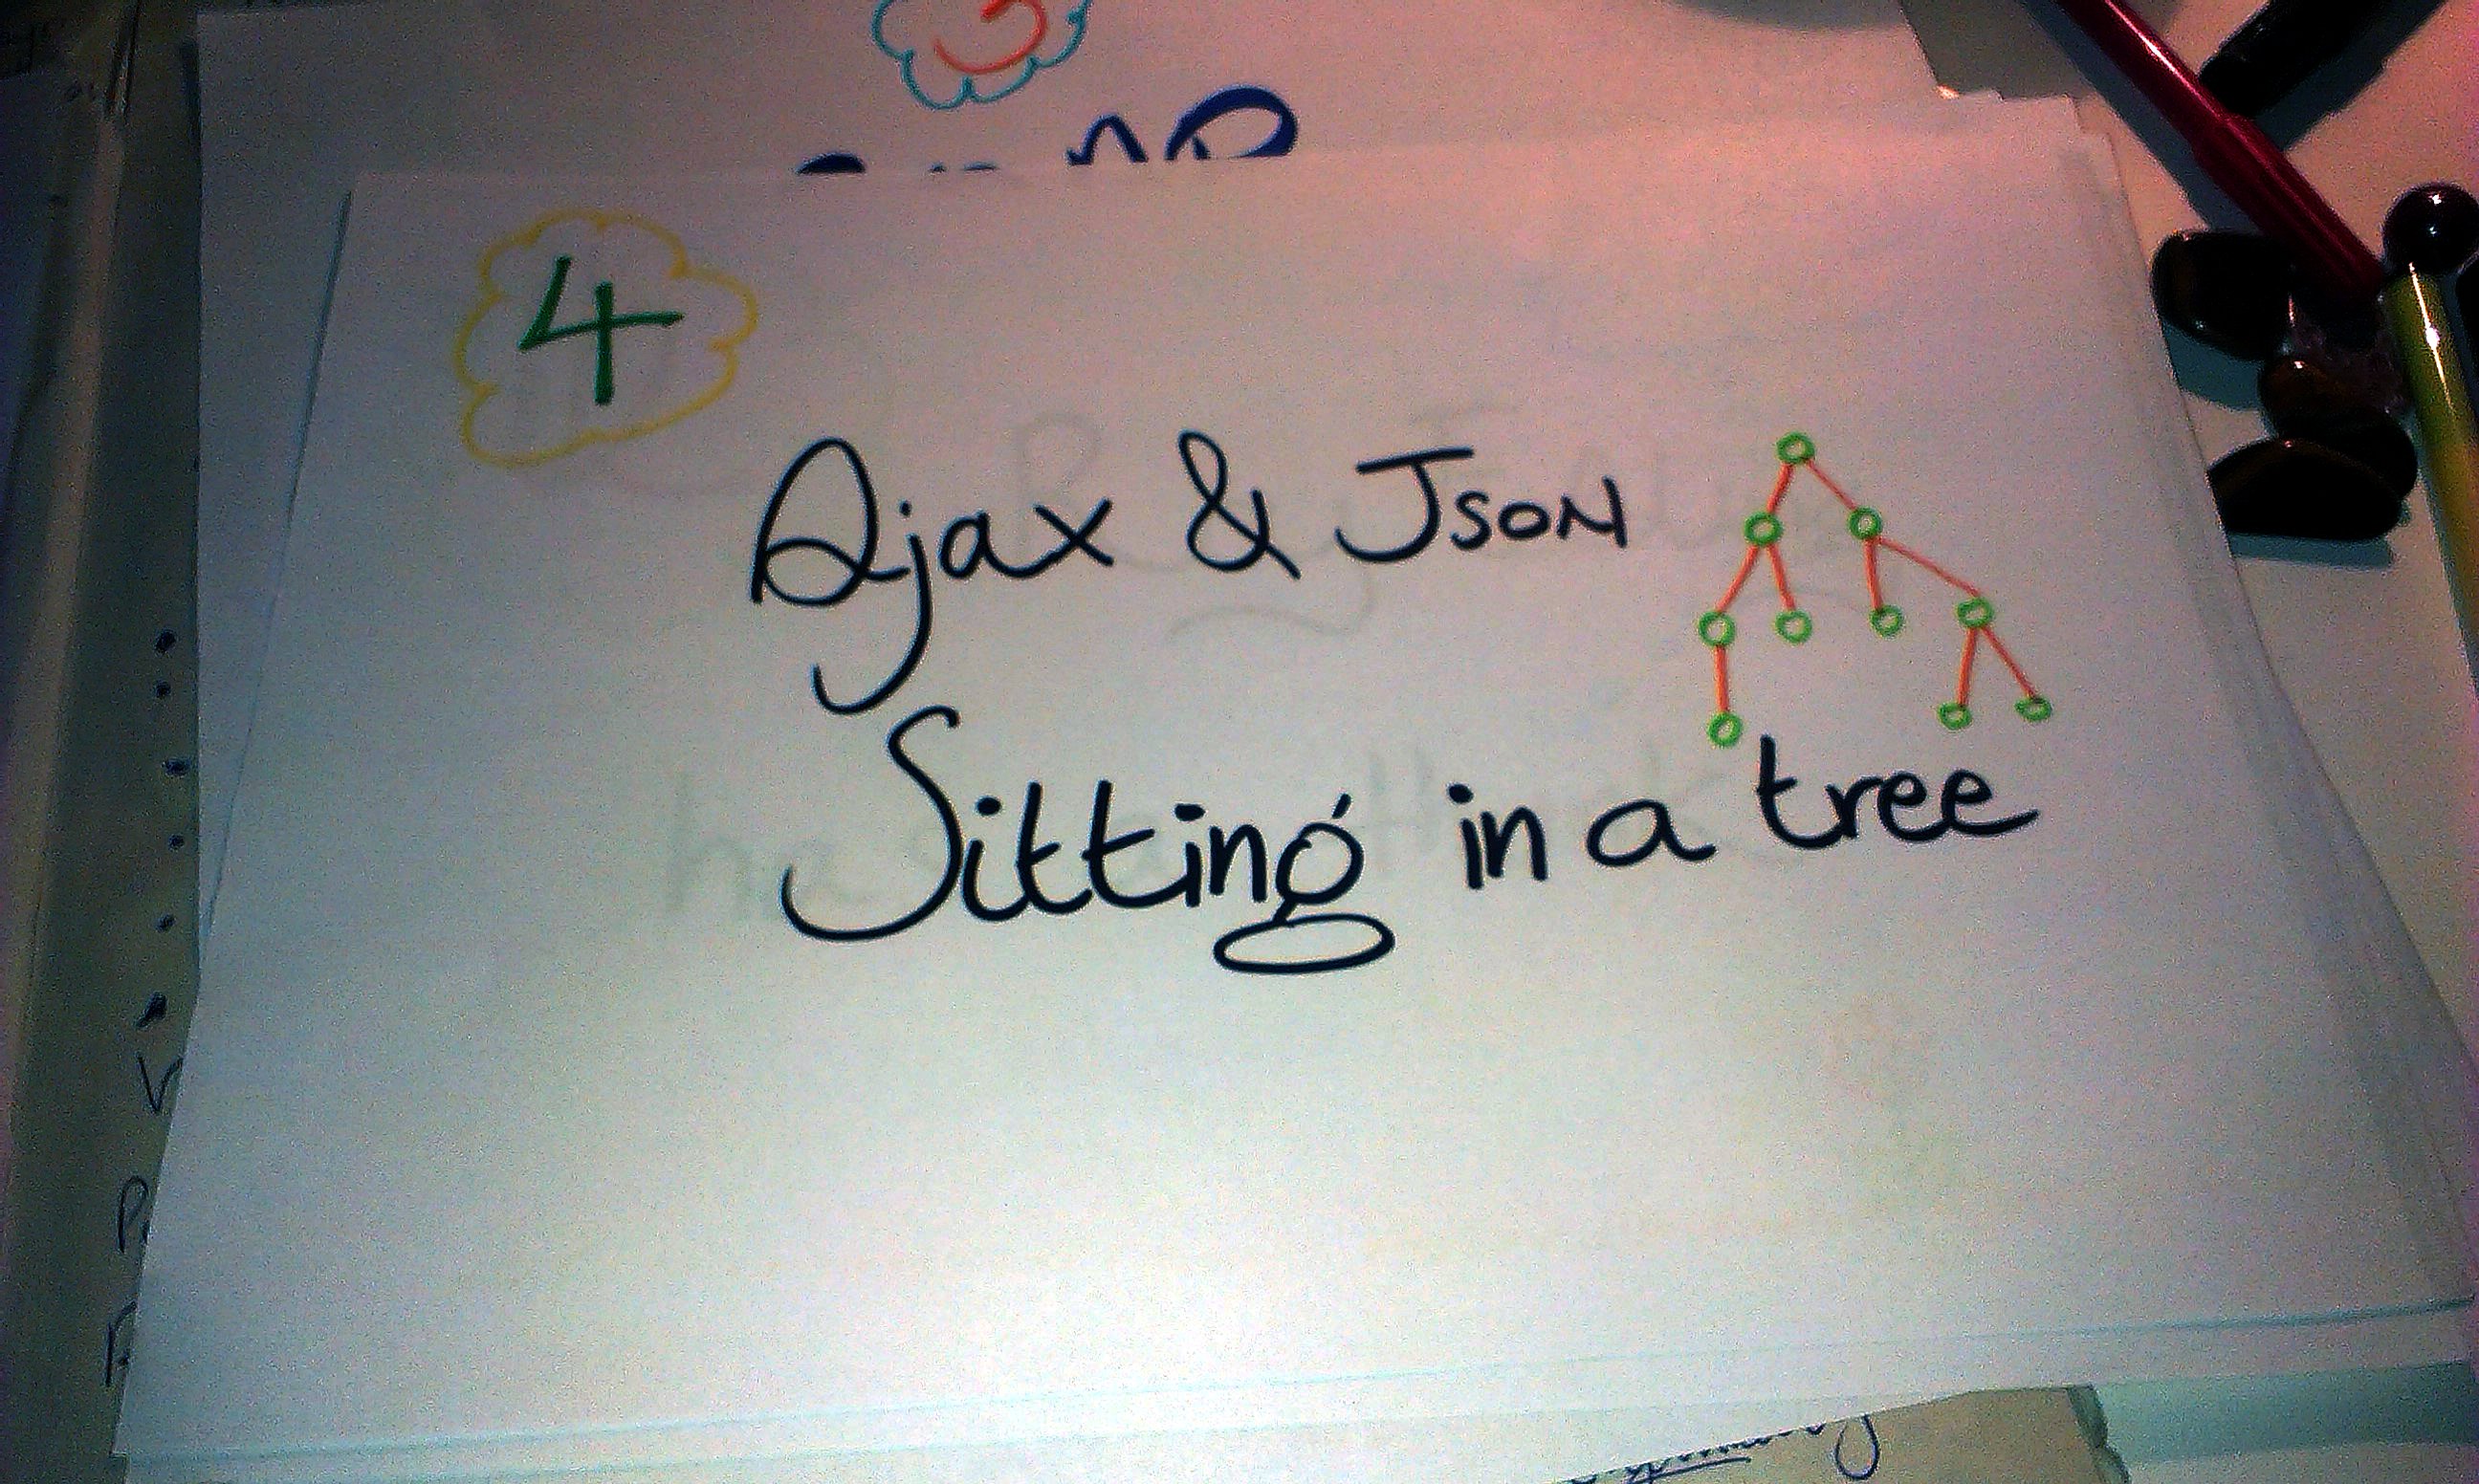 3
4
Ajax & JSON
Sitting in a tree